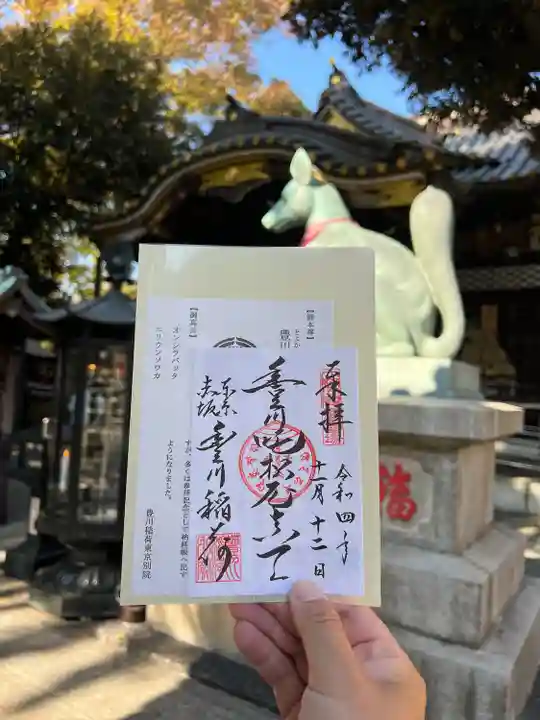 奉拝
令和四年
十一月十二日
豊川吒枳尼真天
東京
赤坂
豊川稲荷
【御本尊】
豊川
【御真言】
オンシラバッタ
ニリウンソワカ
すが、多くは参拝記念として納経帳へ記す
ようになりました。
豊川稲荷東京別院
福